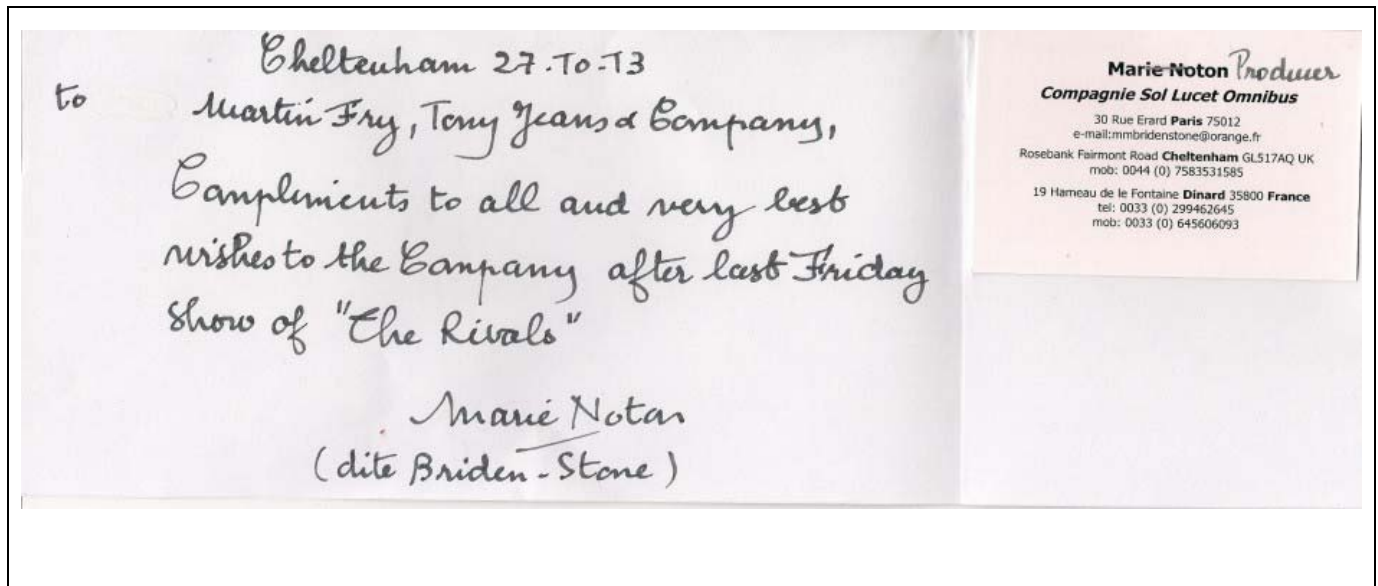 Cheltenham 27.10.13
to Martin Fry, Tony Jeans & Company,
Compliments to all and very best
wishes to the Company after last Friday
show of "The Rivals"
Marie Noton
(dite Briden-Stone)
Marie Noton Producer
Compagnie Sol Lucet Omnibus
30 Rue Erard Paris 75012
e-mail:mmbridenstone@orange.fr
Rosebank Fairmont Road Cheltenham GL517AQ UK
mob: 0044 (0) 7583531585
19 Hameau de le Fontaine Dinard 35800 France
tel: 0033 (0) 299462645
mob: 0033 (0) 645606093